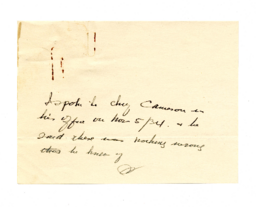 I spoke to Chf Cameron in
his office on Nov 5/34. & he
said there was nothing wrong
that he knew of